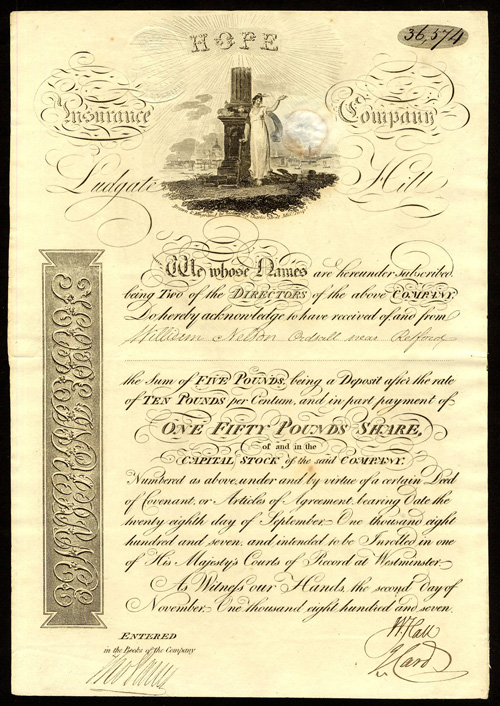 HOPE
36,574
Insurance Company
Ludgate Hill
We whose Names are hereunder subscribed
being Two of the DIRECTORS of the above COMPANY,
Do hereby acknowledge to have received of and from
William Nelson Ordsall near Retford
the Sum of FIVE POUNDS, being a Deposit after the rate
of TEN POUNDS per Centum, and in part payment of
ONE FIFTY POUNDS SHARE,
of and in the
CAPITAL STOCK of the said COMPANY,
Numbered as above, under and by virtue of a certain Deed
of Covenant, or Articles of Agreement, bearing Date the
twenty eighth day of September One thousand eight
hundred and seven, and intended to be Inrolled in one
of His Majesty's Courts of Record at Westminster.
As Witness our Hands, the second Day of
November, One thousand eight hundred and seven.
W Hall
ENTERED
in the Books of the Company